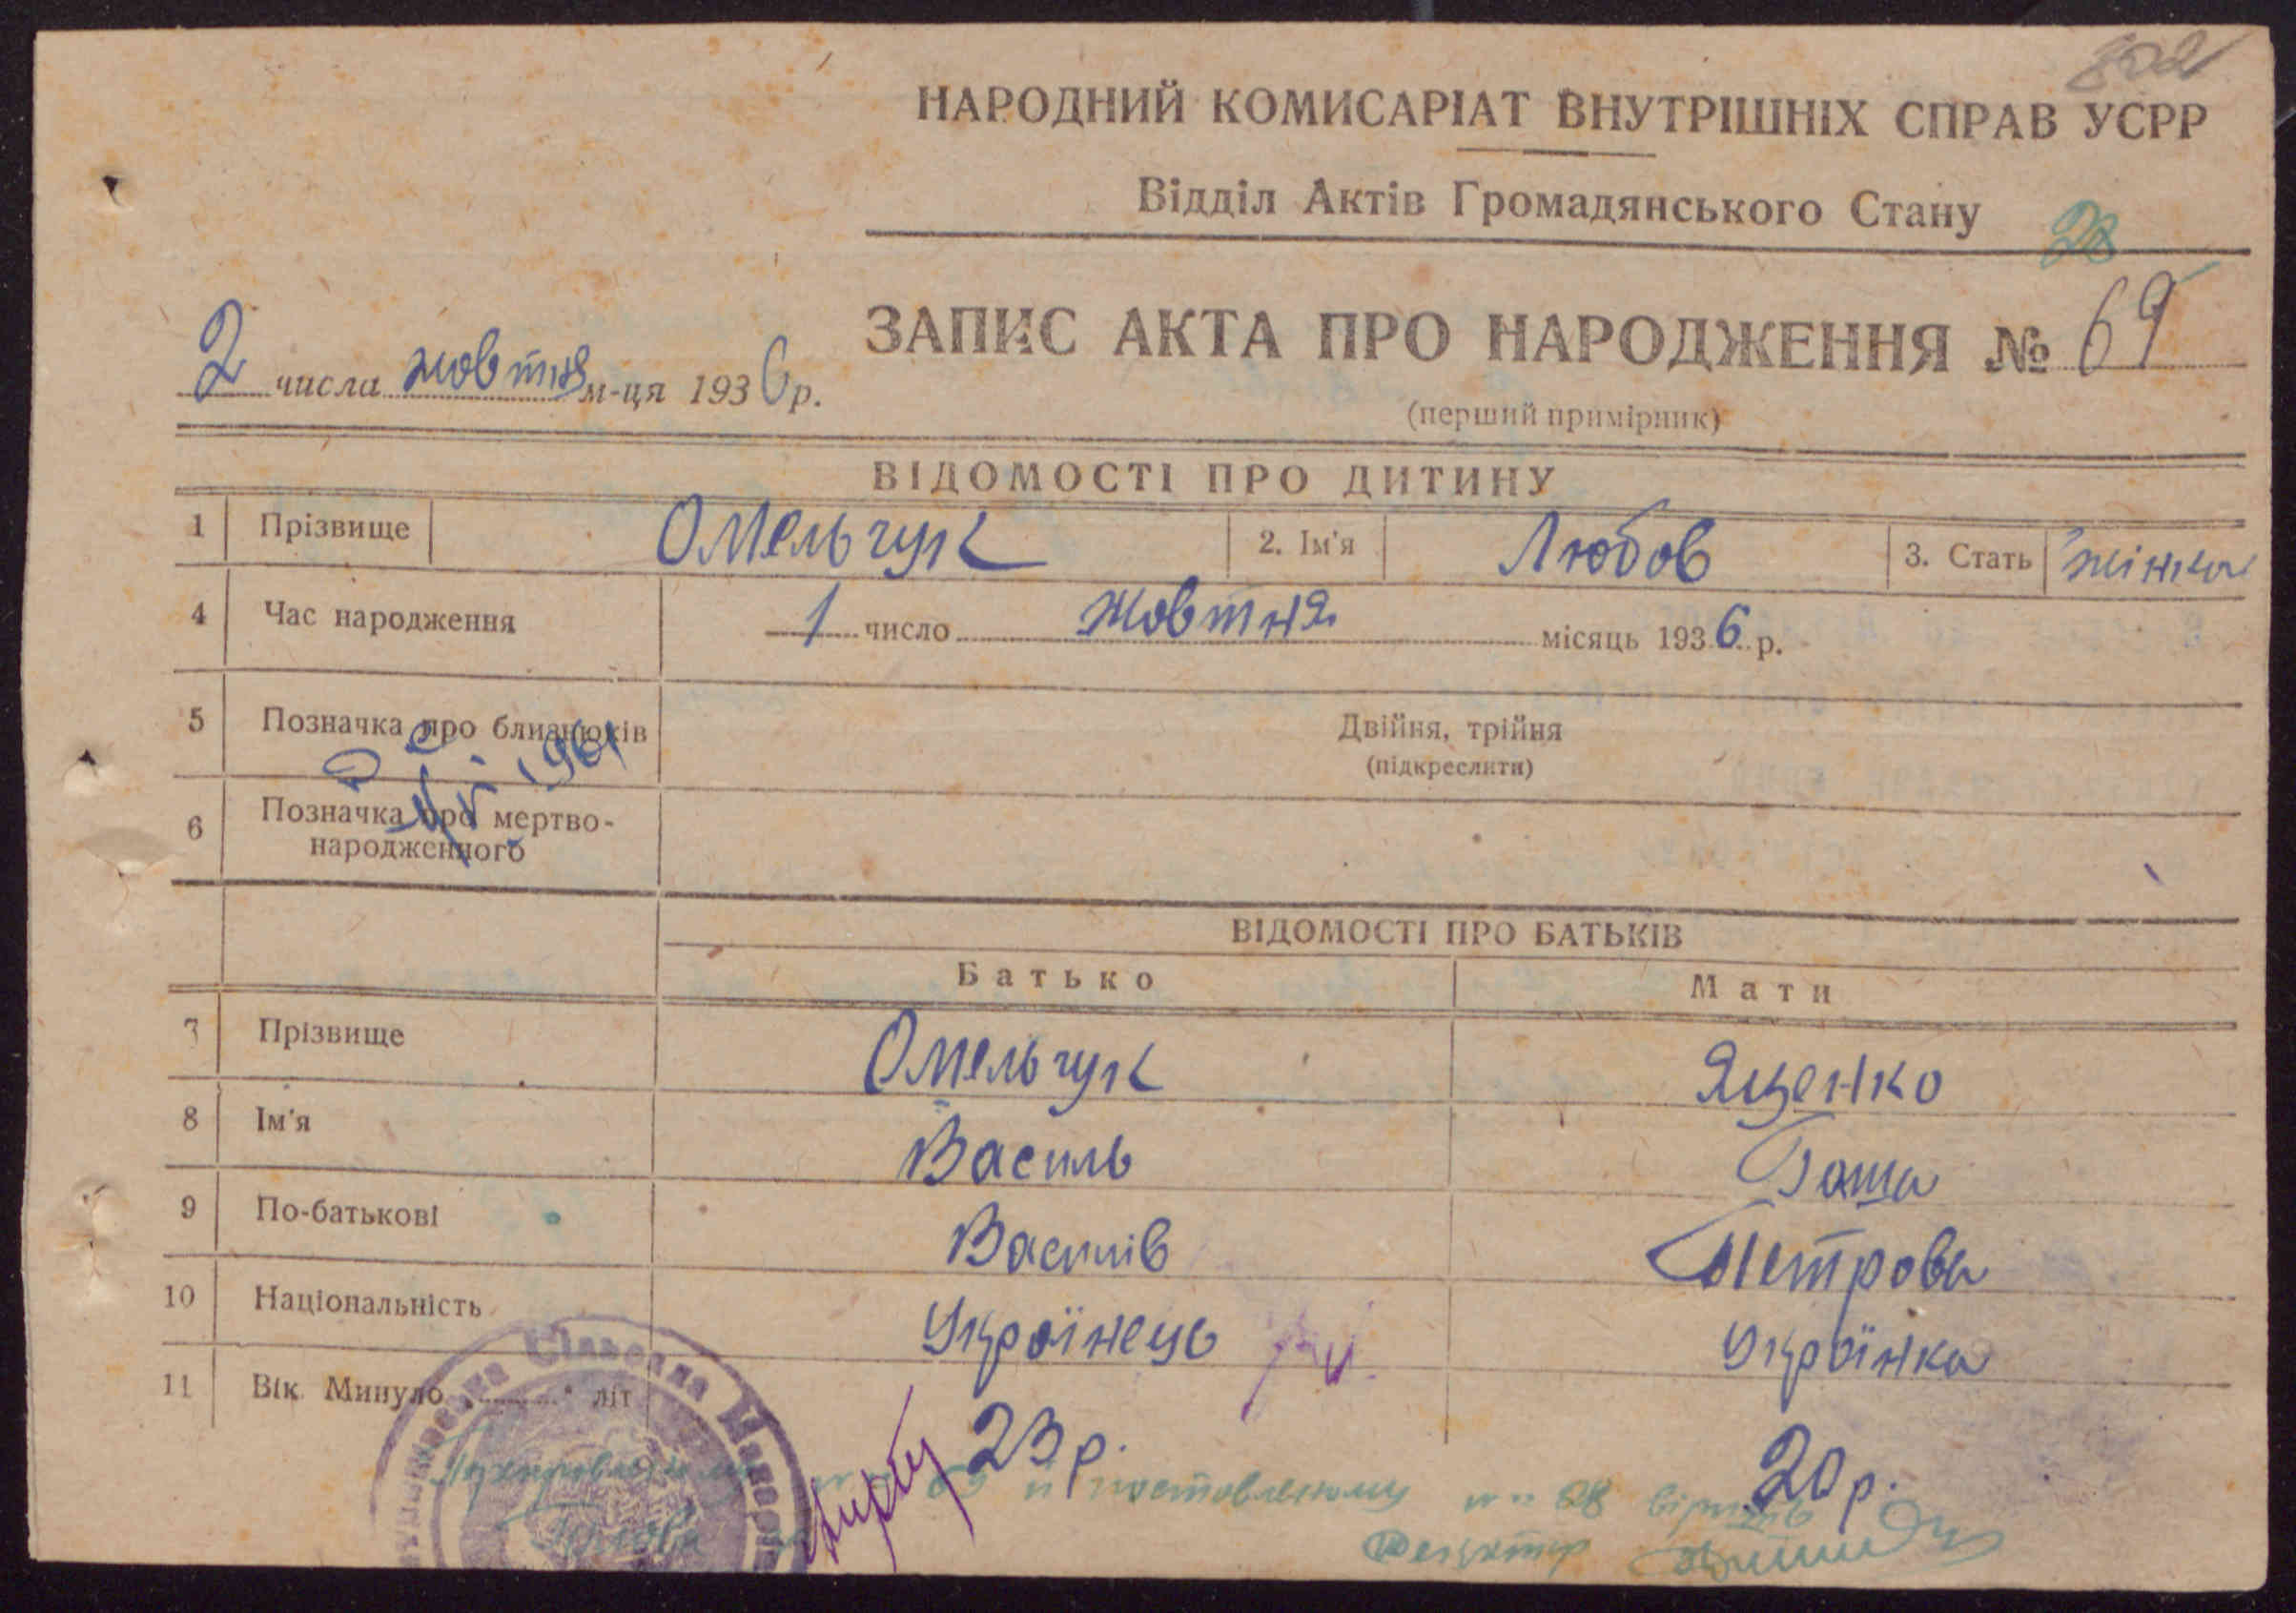 802
НАРОДНИЙ КОМИСАРІАТ ВНУТРІШНІХ СПРАВ УСРР
Відділ Актів Громадянського Стану
28
2 числа жовтня м-ця 1936 р.
ЗАПИС АКТА ПРО НАРОДЖЕННЯ № 69
(перший примірник)
ВІДОМОСТІ ПРО ДИТИНУ
1 Прізвище Омельчук 2. Ім'я Любов 3. Стать жінка
4 Час народження 1 число жовтня місяць 1936 р.
5 Позначка про близнюків Двійня, трійня
(підкреслити)
1961
6 Позначка про мертво-
народженного
ВІДОМОСТІ ПРО БАТЬКІВ
Батько Мати
7 Прізвище Омельчук Яценко
8 Ім'я Василь
9 По-батькові Василів Петрова
10 Національність Українець Українка
11 Вік. Минуло літ 23 р. 20 р.
69 и поставленому № 28 вірить